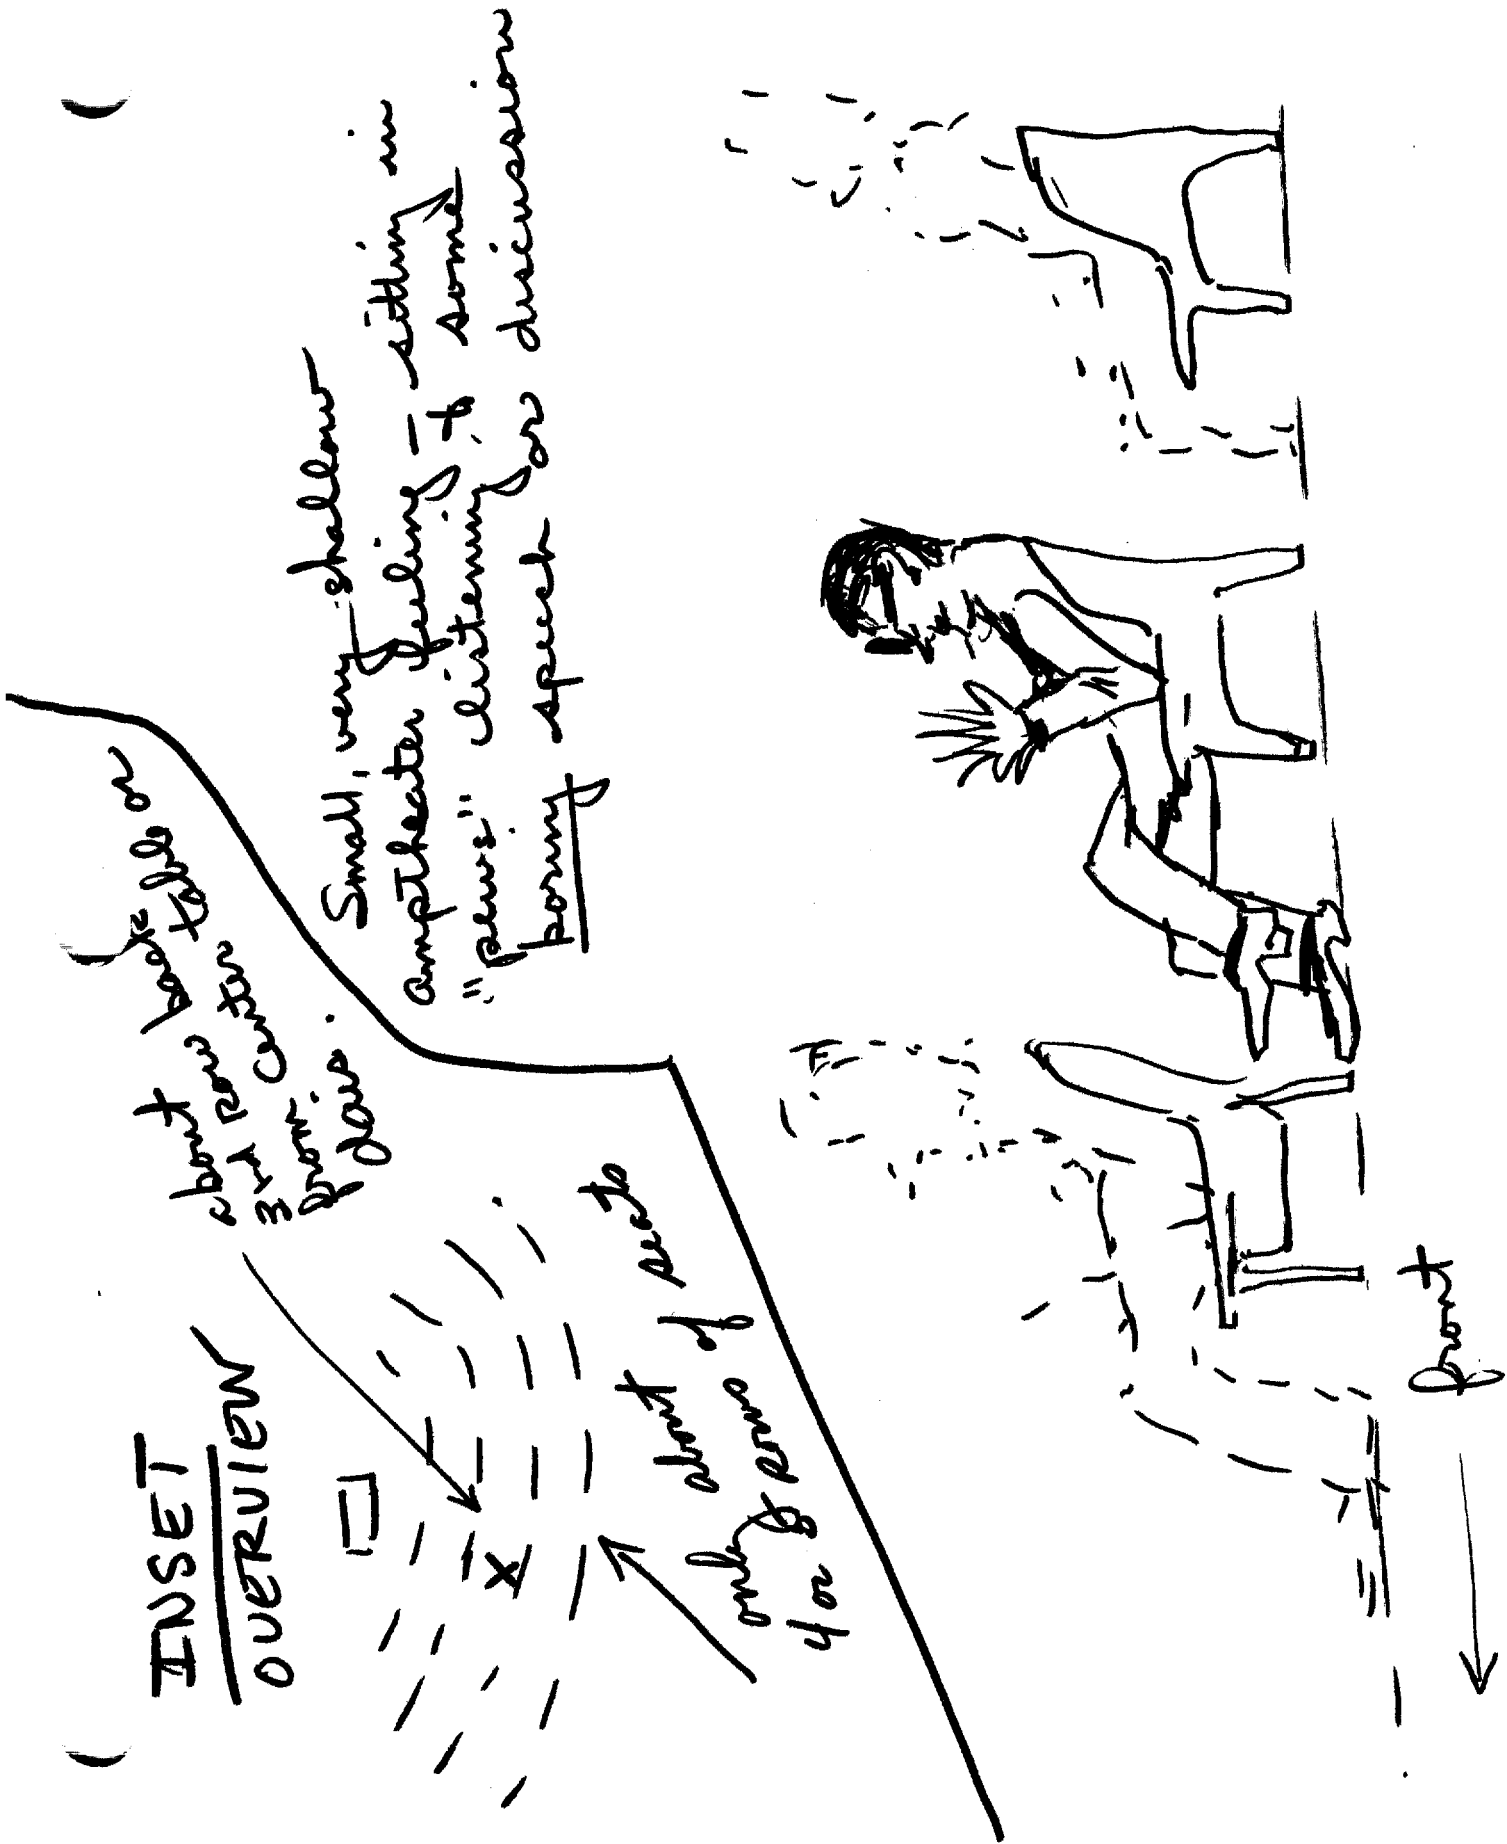 INSET
OVERVIEW
about
3rd Row back
from Center table or
dais.
only about
4 or 5 rows of seats
Small, very shallow
amptheater feeling - sitting in
"pews" listening to some
boring speech or discussion
front